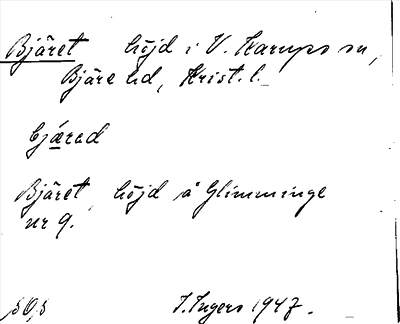 Bjäret höjd i V. Karups sn,
Bjäre hd, Krist. l.
bjä̱rad
Bjäret, höjd å Glimminge
nr 9.
I. Ingers 1947.